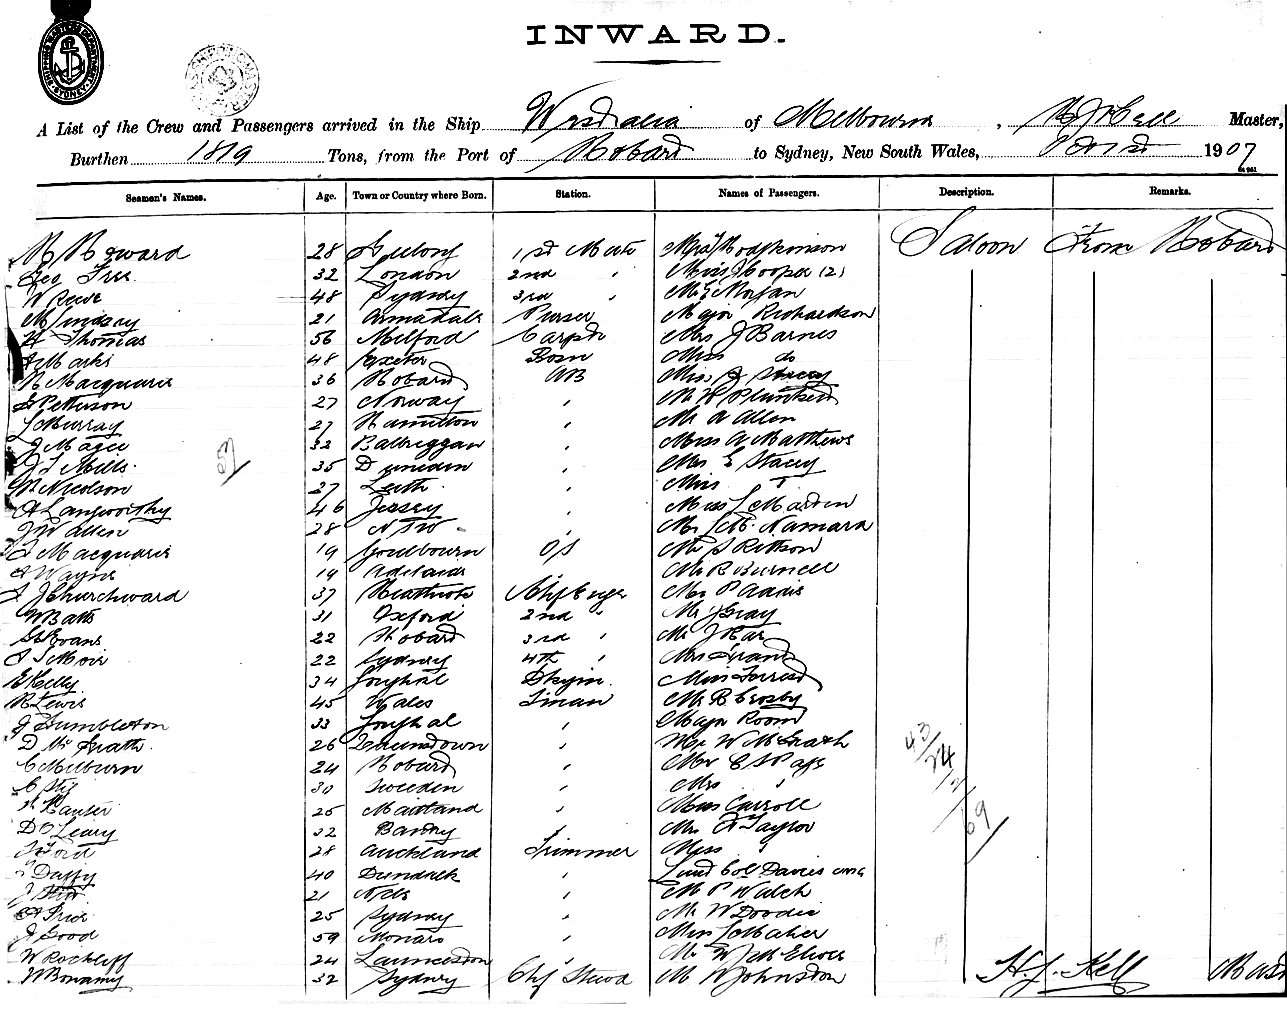 INWARD.
A List of the Crew and Passengers arrived in the Ship Westralia of Melbourne, Master,
Burthen 1819 Tons, from the Port of Hobart to Sydney, New South Wales, 1907
Seamen's Names. Age. Town or Country where Born. Station. Names of Passengers. Description. Remarks.
R Howard 28 Geelong 1st Mate Hodgkinson Saloon From Hobart
Geo Tree 32 London 2nd " Miss Hooper (2)
W Reese 48 Sydney 3rd " Morgan
M Lindsay 21 Armadale Purser Major Richardson
H Thomas 56 Milford Carptr Mrs J Barnes
J Marks 48 Exeter Bosn Miss do
R Macquarie 36 Hobart AB Miss Stacey
Petterson 27 Norway " Plunkett
L Murray 27 Hamilton " Mr A Allen
J Magee 32 Balbriggan " Miss A Matthews
J T Mills 35 Dunedin " Mrs E Stacey
N Nicolson 27 Leith " Miss "
A Langworthy 46 Jersey " Miss L Martin
J W Allen 28 NSW " McNamara
57
Macquarie 19 Goulbourn O/S Mr S Rittson
Wayne 19 Adelaide Mr R Burnell
J Churchward 37 Heathcote Chf Enger Mrs P Addis
W Batts 31 Oxford 2nd " Mr J Gray
Evans 22 Hobart 3rd " Mr J
Moir 22 Sydney 4th "
E Kelly 34 Youghal Dkyin Miss Forrest
R Lewis 45 Wales Firman Mr B Crosby
J Grumbleton 33 Youghal " Major Room
D McGrath 26 " Mr W McGrath
C Milburn 24 Hobart " Mr C Page
30 Sweden " Mrs "
Hanter 25 Maitland " Miss Carroll
D O'Leary 32 Bantry " A Taylor
Ford 28 Auckland Trimmer Miss "
Duffy 40 Dundalk " Lieut Col Davies CMG
J 21 " Mr P Walch
A Price 25 Sydney " Mr W Doodie
J Good 59 Monaro " Miss L Maher
W Rockliff 24 Launceston Mr W McElwee
W Bonamy 32 Sydney Chf Stewd Mr W Johnston
43/24/2/69
H. J. Kell Mast